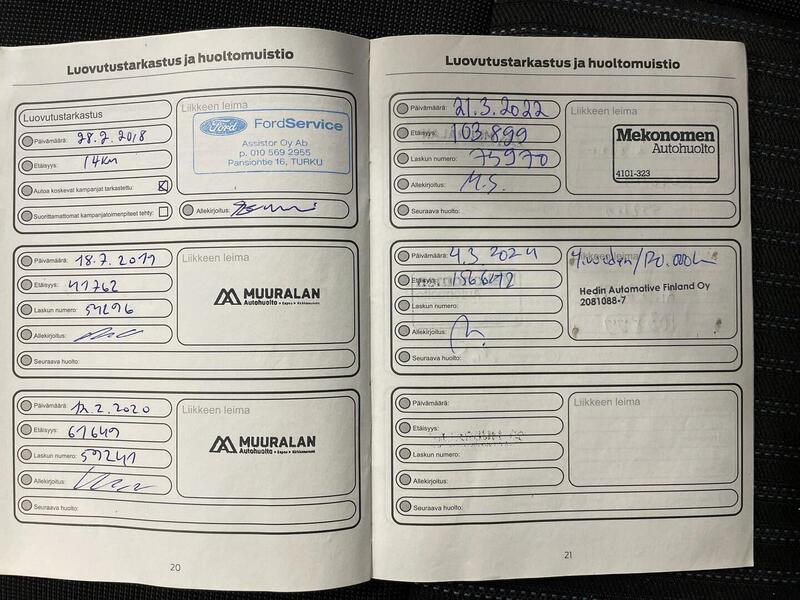 Luovutustarkastus ja huoltomuistio
Luovutustarkastus
Päivämäärä: 28.2.2018
Etäisyys: 14km
Autoa koskevat kampanjat tarkastettu:
Suorittamattomat kampanjatoimenpiteet tehty:
Liikkeen leima
Ford FordService
Assistor Oy Ab
p. 010 569 2955
Pansiontie 16, TURKU
Allekirjoitus:
Päivämäärä: 18.7.2019
Etäisyys: 41762
Laskun numero: 54696
Allekirjoitus:
Seuraava huolto:
Liikkeen leima
MUURALAN
Autohuolto • Espoo • Kirkkonummi
Päivämäärä: 12.2.2020
Etäisyys: 61649
Laskun numero: 59241
Allekirjoitus:
Seuraava huolto:
Liikkeen leima
MUURALAN
Autohuolto • Espoo • Kirkkonummi
20
Luovutustarkastus ja huoltomuistio
Päivämäärä: 21.3.2022
Etäisyys: 103.899
Laskun numero: 75970
Allekirjoitus: M.S.
Seuraava huolto:
Liikkeen leima
Mekonomen
Autohuolto
4101-323
Päivämäärä: 4.3.2024
Etäisyys:
Laskun numero:
Allekirjoitus:
Seuraava huolto:
Liikkeen leima
Hedin Automotive Finland Oy
2081088-7
Päivämäärä:
Etäisyys:
Laskun numero:
Allekirjoitus:
Seuraava huolto:
Liikkeen leima
21